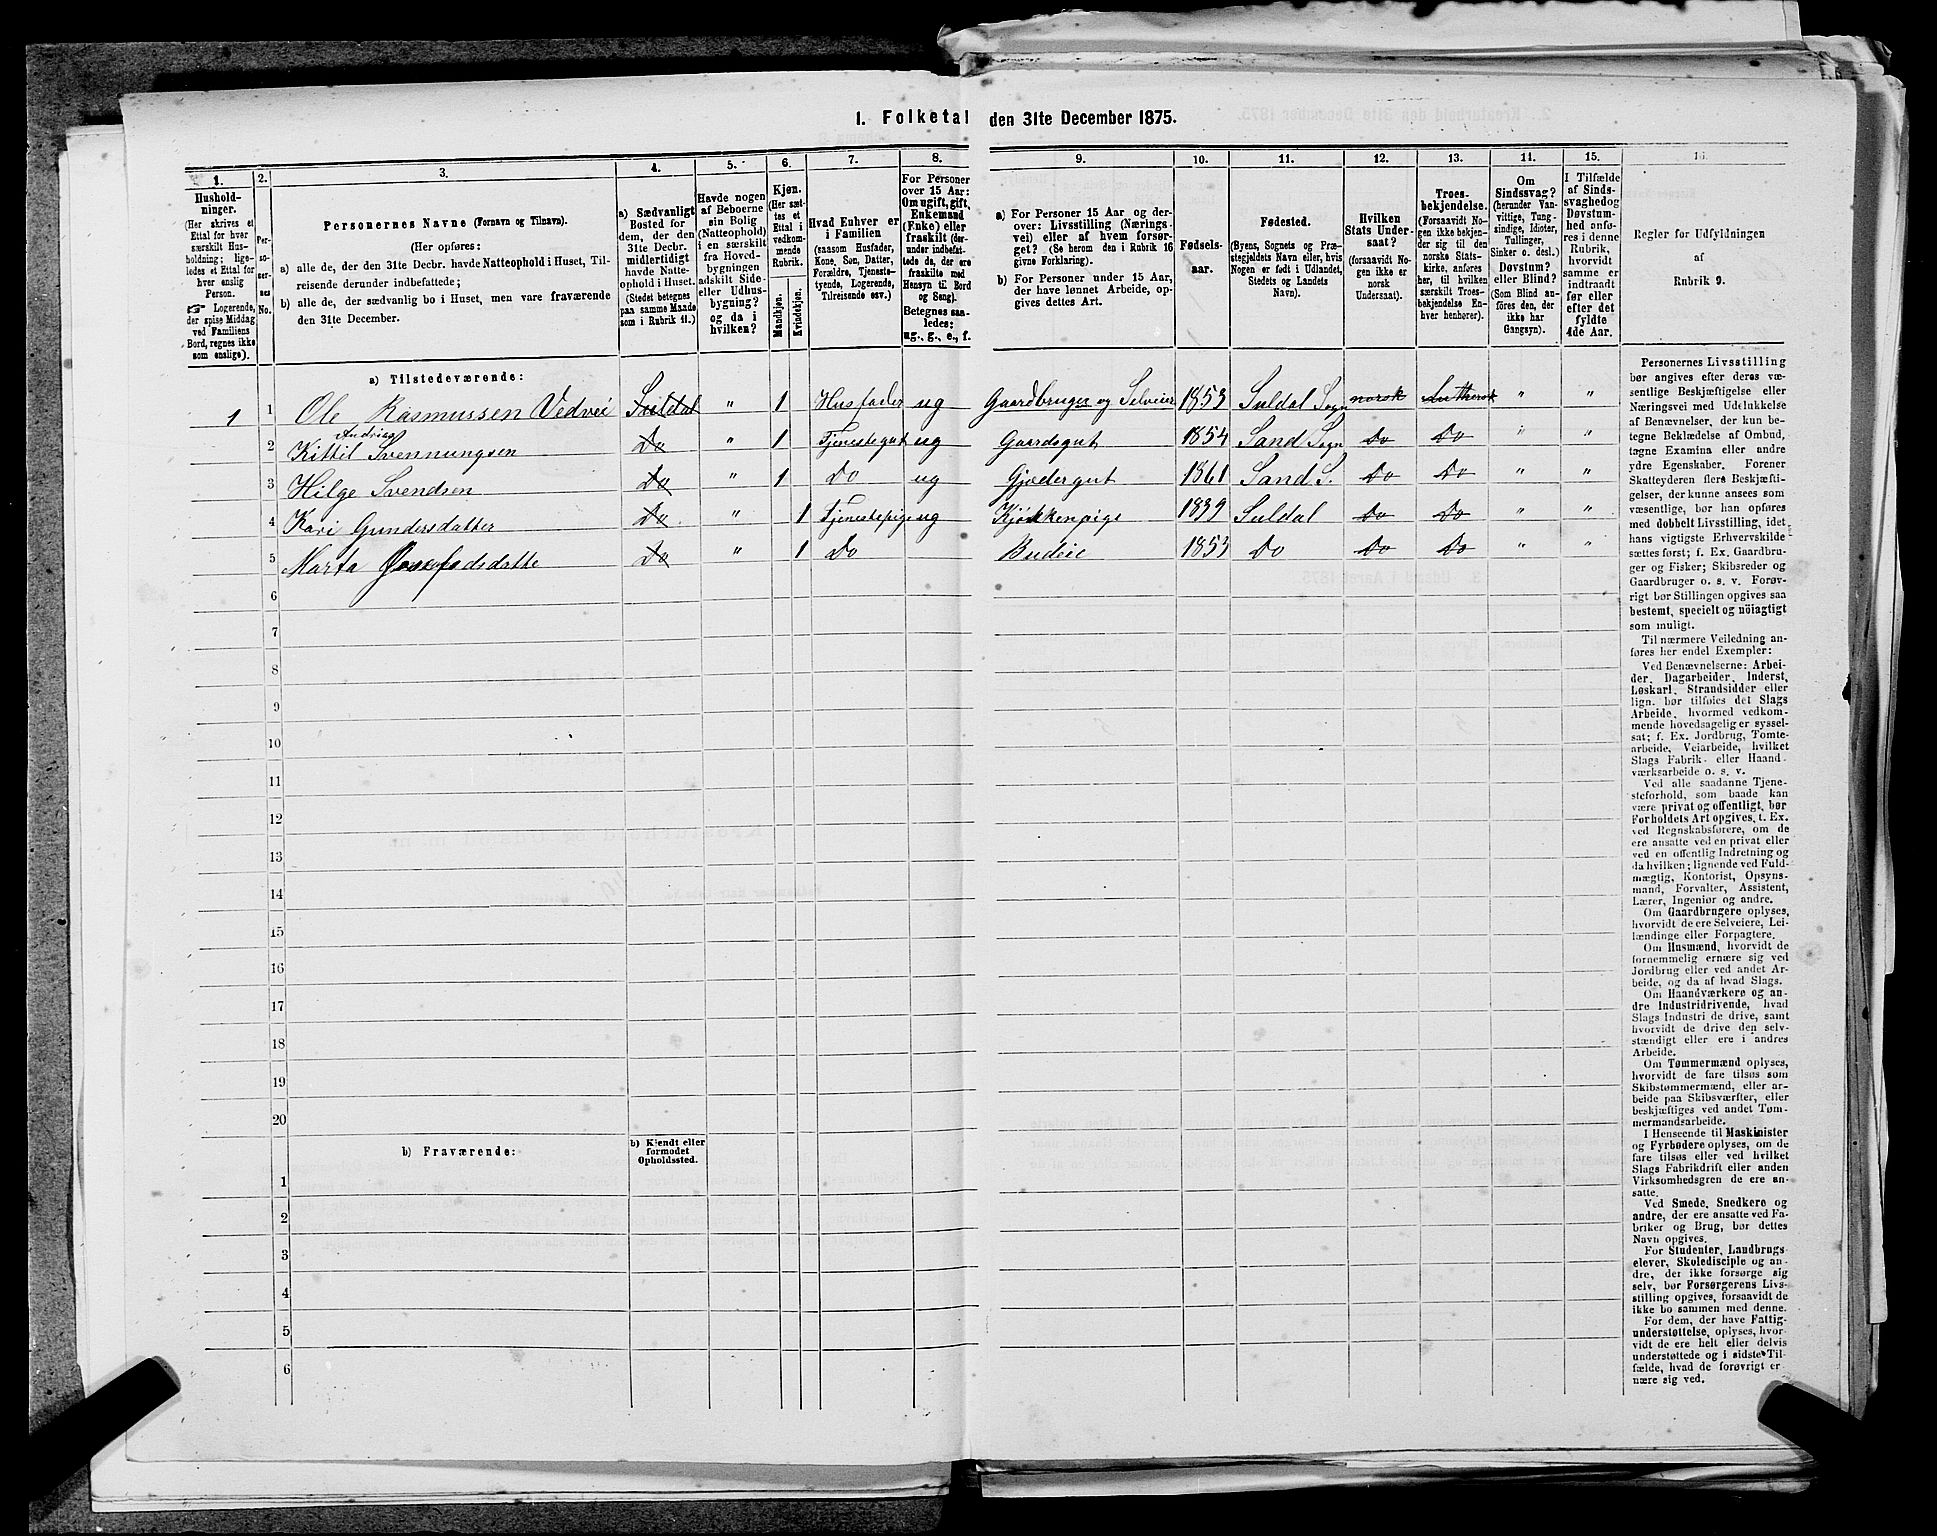 1. Folketal den 31te December 1875.
1.
2.
3.
4.
5.
6.
7.
8.
9.
10.
11.
12.
13.
14.
15.
16.
Hushold-
ninger.
(Her skrives et
Ettal for hver
særskilt Hus-
holdning; lige-
ledes et Ettal for
hver enslig
Person.
☞ Logerende,
der spise Middag
ved Familiens
Bord, regnes ikke
som enslige).
Per-
so-
ner-
nes
No.
Personernes Navne (Fornavn og Tilnavn).
(Her opføres:
a) alle de, der den 31te Decbr. havde Natteophold i Huset, Til-
reisende derunder indbefattede;
b) alle de, der sædvanlig bo i Huset, men vare fraværende
den 31te December.
a) Sædvanligt
Bosted for
dem, der den
31te Decbr.
midlertidigt
havde Natte-
ophold i Huset.
(Stedet betegnes
paa samme Maade
som i Rubrik 11.)
Havde nogen
af Beboerne
sin Bolig
(Natteophold)
i en særskilt
fra Hoved-
bygningen
adskilt Side-
eller Udhus-
bygning?
og da i
hvilken?
Kjøn.
(Her sæt-
tes et
Ettal i
vedkom-
mende
Rubrik.
Mandkjøn.
Kvindekjøn.
Hvad Enhver er
i Familien
(saasom Husfader,
Kone, Søn, Datter,
Forældre, Tjeneste-
tyende, Logerende,
Tilreisende osv.)
For Personer
over 15 Aar:
Om ugift, gift,
Enkemand
(Enke) eller
fraskilt (der-
under indbefat-
tede de, der ere
fraskilte med
Hensyn til Bord
og Seng).
Betegnes saa-
ledes:
ug., g., e., f.
a) For Personer 15 Aar og der-
over: Livsstilling (Nærings-
vei) eller af hvem forsør-
get? (Se herom den i Rubrik 16
givne Forklaring).
b) For Personer under 15 Aar,
der have lønnet Arbeide, op-
gives dettes Art.
Fødsels-
aar.
Fødested.
(Byens, Sognets og Præ-
stegjeldets Navn eller, hvis
Nogen er født i Udlandet,
Stedets og Landets
Navn).
Hvilken
Stats Under-
saat?
(forsaavidt No-
gen ikke er
norsk
Undersaat).
Troes-
bekjendelse.
(Forsaavidt No-
gen ikke bekjen-
der sig til den
norske Stats-
kirke, anføres
her, til hvilken
særskilt Troes-
bekjendelse En-
hver henhører).
Om
Sindssvag?
(herunder Van-
vittige, Tung-
sindige, Idioter,
Tullinger,
Sinker o. desl.)
Døvstum?
eller Blind?
(Som Blind an-
føres den, der
ikke har
Gangsyn).
I Tilfælde
af Sinds-
svaghed og
Døvstum-
hed anfø-
res i denne
Rubrik,
hvorvidt
samme er
indtraadt
før eller
efter det
fyldte
4de Aar.
Regler for Udfyldningen
af
Rubrik 9.
a) Tilstedeværende:
1 1 Ole Rasmussen Vedvei Suldal " 1 Husfader ug Gaardbruger og Selveier 1853 Suldal Sogn norsk Luthersk " "
Andrias
2 Kittil Svennungsen Do " 1 Tjenestegut ug Gaardsgut 1854 Sand Sogn Do Do " "
3 Hilge Svendsen Do " 1 Do ug Gjædergut 1861 Sand S. Do Do " "
4 Kari Gundersdatter Do " 1 Tjenestepige ug Kjøkkenpige 1839 Suldal Do Do " "
5 Marta Do " 1 Do Budeie 1853 Do Do Do " "
6
7
8
9
10
11
12
13
14
15
16
17
18
19
20
b) Fraværende:
b) Kjendt eller
formodet
Opholdssted.
1
2
3
4
5
6
Personernes Livsstilling
bør angives efter deres væ-
sentlige Beskjæftigelse eller
Næringsvei med Udelukkelse
af Benævnelser, der kun be-
tegne Beklædelse af Ombud,
tagne Examina eller andre
ydre Egenskaber. Forener
Skatteyderen flere Beskjæfti-
gelser, der kunne ansees som
væsentlige, bør han opføres
med dobbelt Livsstilling, idet
hans vigtigste Erhvervskilde
sættes først; f. Ex. Gaardbru-
ger og Fisker; Skibsreder og
Gaardbruger o. s. v. Forøv-
rigt bør Stillingen opgives saa
bestemt, specielt og nöiagtigt
som muligt.
Til nærmere Veiledning an-
føres her endel Exempler:
Ved Benævnelserne: Arbei-
der, Dagarbeider, Inderst,
Løskarl, Strandsidder eller
lign. bør tilføies det Slags
Arbeide, hvormed vedkom-
mende hovedsagelig er syssel-
sat; f. Ex. Jordbrug, Tomte-
arbeide, Veiarbeide, hvilket
Slags Fabrik- eller Haand-
værksarbeide o. s. v.
Ved alle saadanne Tjene-
steforhold, som baade kan
være privat og offentligt, bør
Forholdets Art opgives, t. Ex.
ved Regnskabsførere, om de
ere ansatte ved en privat eller
ved en offentlig Indretning og
da hvilken; lignende ved Fuld-
mægtig, Kontorist, Opsyns-
mand, Forvalter, Assistent,
Lærer, Ingeniør og andre.
Om Gaardbrugere oplyses,
hvorvidt de ere Selveiere, Lei-
lændinge eller Forpagtere.
Om Husmænd, hvorvidt de
fornemmelig ernære sig ved
Jordbrug eller ved andet Ar-
beide, og da af hvad Slags.
Om Haandværkere og an-
dre Industridrivende, hvad
Slags Industri de drive, samt
hvorvidt de drive den selv-
stændigt eller ere i andres
Arbeide.
Om Tømmermænd oplyses,
hvorvidt de fare tilsøs som
Skibstømmermænd, eller ar-
beide paa Skibsværfter, eller
beskjæftiges ved andet Tøm-
mermandsarbeide.
I Henseende til Maskinister
og Fyrbødere oplyses, om de
fare tilsøs eller ved hvilket
Slags Fabrikdrift eller anden
Virksomhedsgren de ere an-
satte.
Ved Smede, Snedkere og
andre, der ere ansatte ved Fa-
briker og Brug, bør dettes
Navn opgives.
For Studenter, Landbrugs-
elever, Skoledisciple og an-
dre, der ikke forsørge sig
selv, bør Forsørgerens Livs-
stilling opgives, forsaavidt de
ikke bo sammen med denne.
For dem, der have Fattig-
understøttelse, oplyses, hvor-
vidt de ere helt eller delvis
understøttede og i sidste Til-
fælde, hvad de forøvrigt er-
nære sig ved.